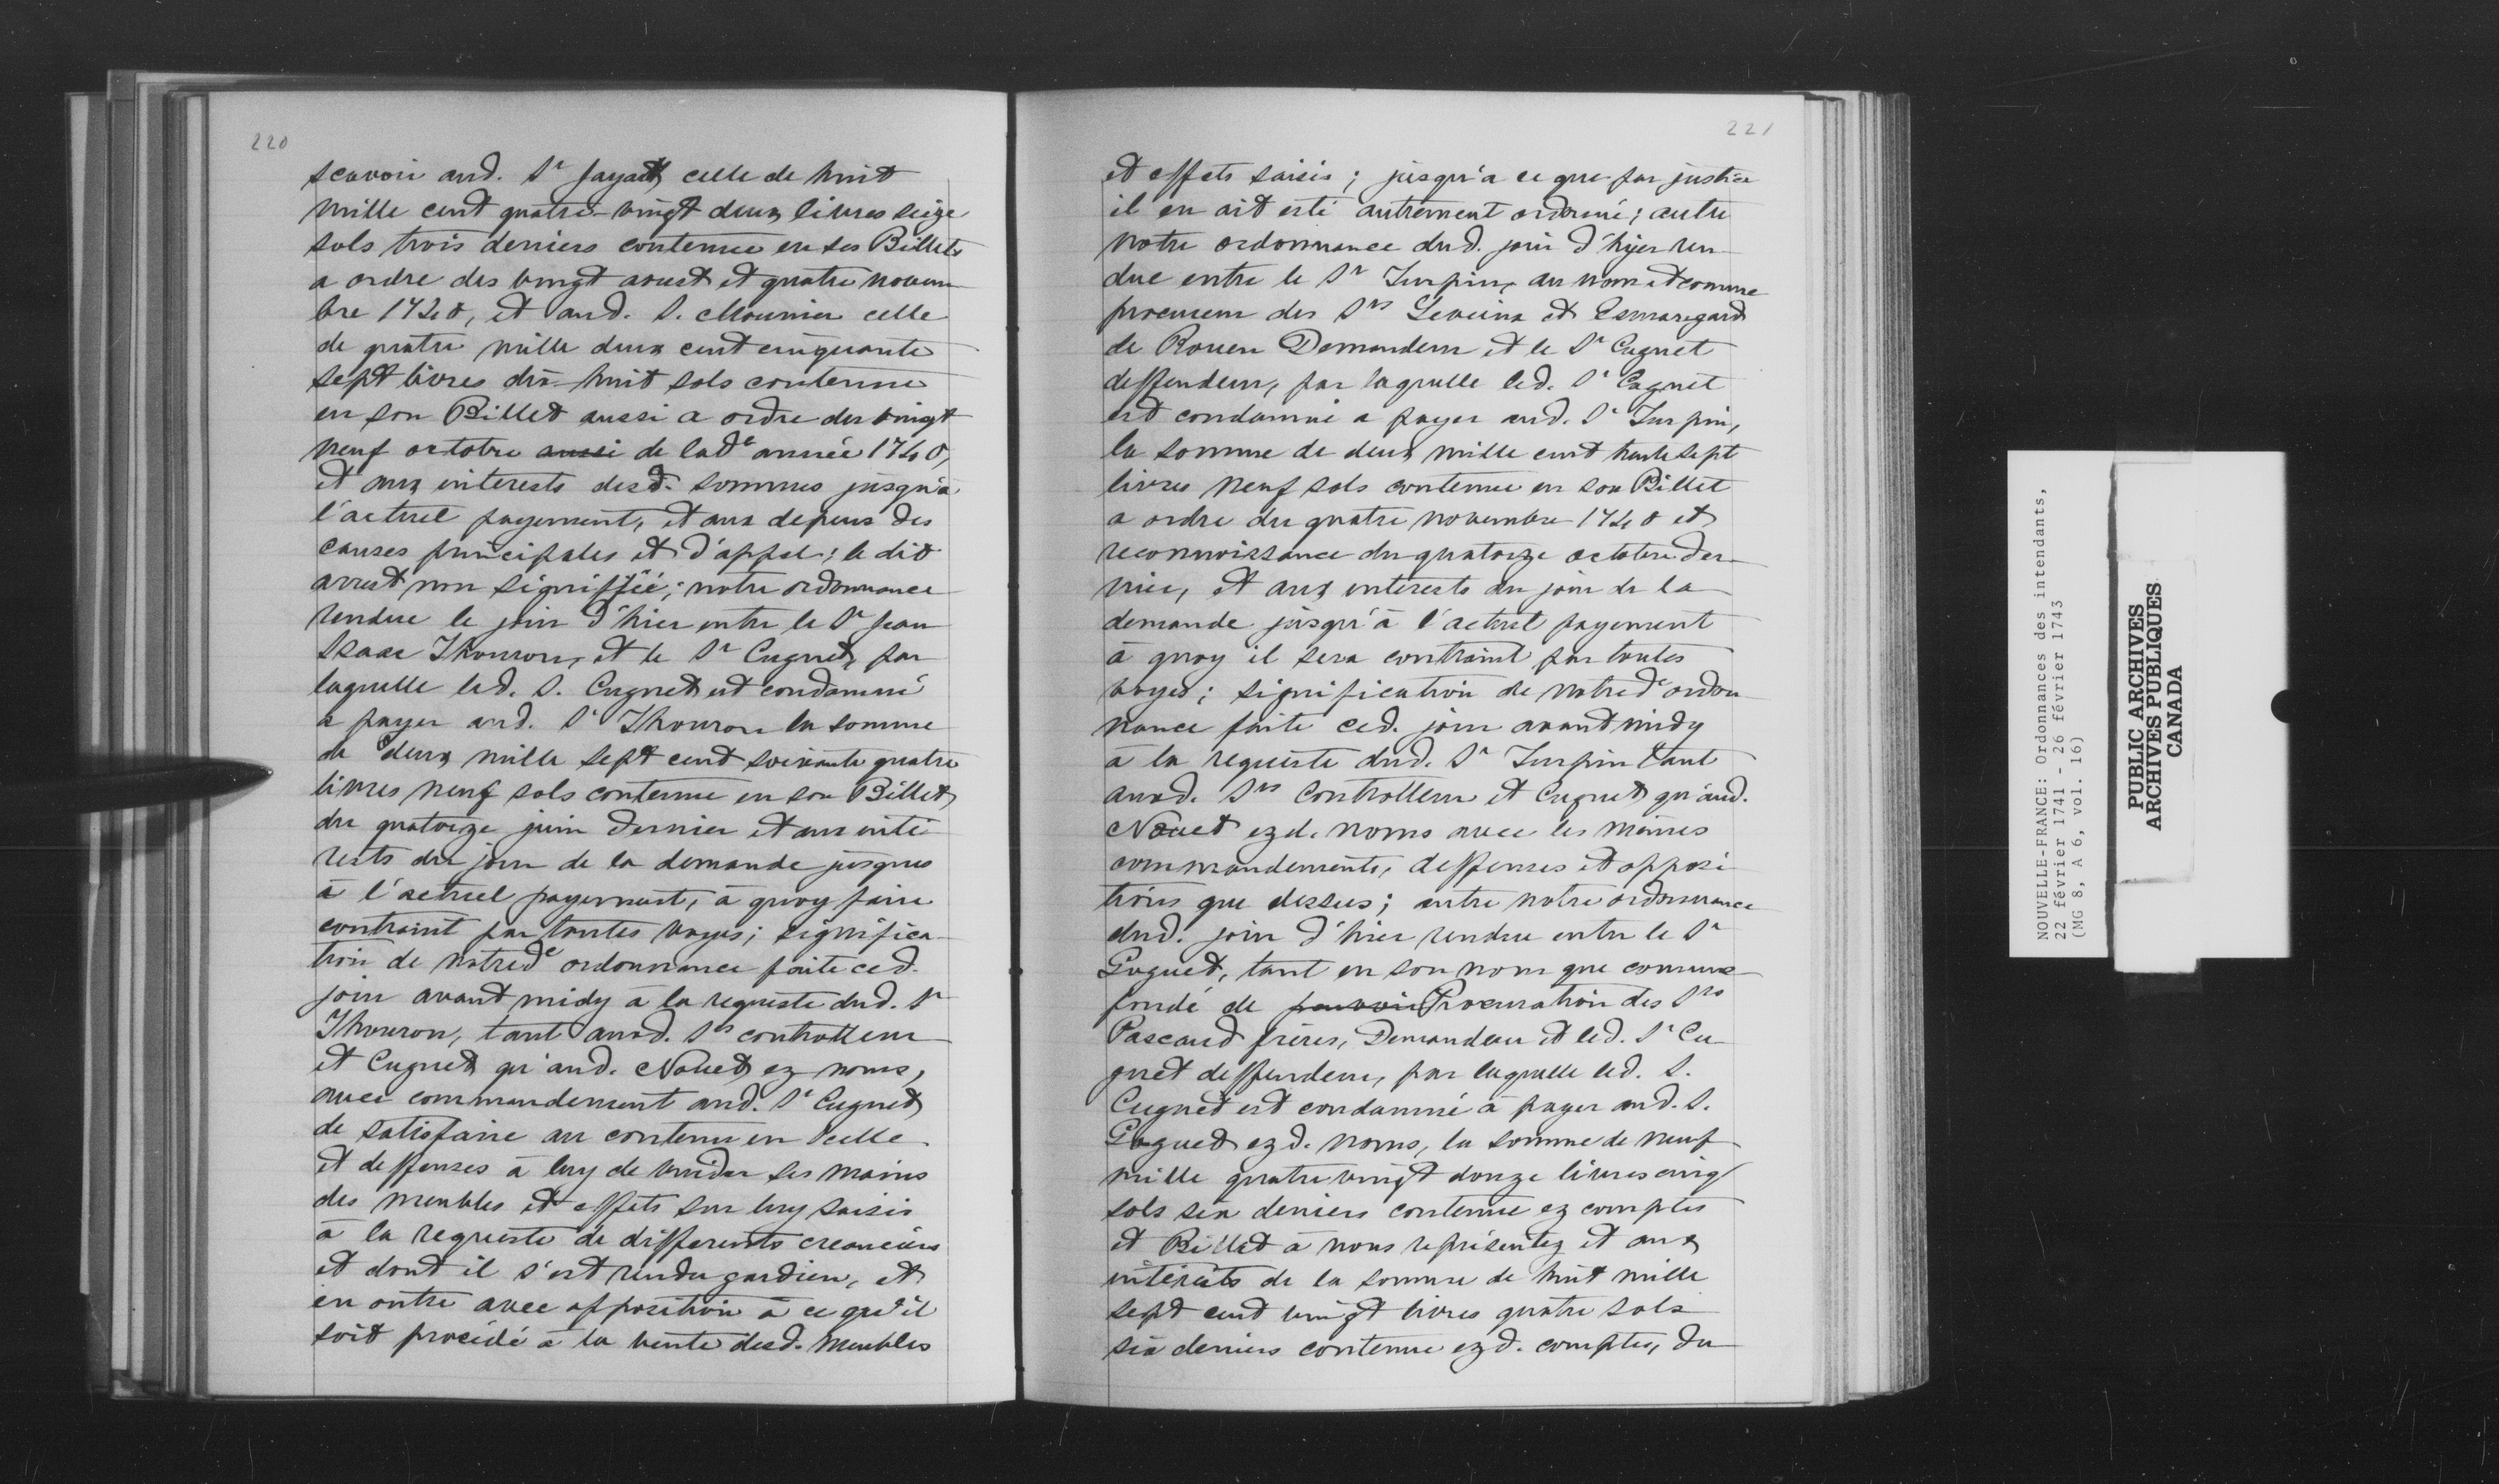 220
scavoir aud. Sr Jayat, celle de huit
mille cent quatre-vingt deux livres seize
sols trois deniers contenue en ses Billets
a ordre des vingt aoust et quatre novem
bre 1740, et aud. S. Mounier celle
de quatre mille deux cent cinquante
sept livres dix-huit sols contenue
en son Billet aussi a ordre du vingt
neuf octobre aussi de lade année 1740,
et aux interests desd. sommes jusqu'à
l'actuel payement, et aux depens des
causes principales et d'appel; le dit
arrest non signiffié; notre ordonnance
rendue le jour d'hier entre le Sr Jean
Isaac Thouron, et le Sr Cugnet, par
laquelle led. S. Cugnet est condamné
a payer aud. Sr Thouron la somme
de deux mille sept cent soixante quatre
livres neuf sols contenue en son Billet
du quatorze juin dernier et aux inté
rests du jour de la demande jusques
à l'actuel payement, à quoy faire
contraint par toutes voyes; significa-
tion de notrede ordonnance faite ced.
jour avant midy à la requeste dud. Sr
Thouron, tant auxd. Srs controlleur
et Cugnet qu'aud. Nouet ez noms,
avec commandement aud. Sr Cugnet
de satisfaire au contenu en icelle
et deffenses à luy de vuider ses mains
des meubles et effets sur luy saisis
à la requeste de differents creanciers
et dont il s'est rendu gardien, et
en outre avec opposition à ce qu'il
soit procédé à la vente desd. meubles
221
et effets saisis; jusqu'a ce que par justice
il en ait esté autrement ordonné; autre
notre ordonnance dud. jour d'hyer ren-
due entre le Sr Turpin, au nom et comme
procureur des Srs
de Rouen Demandeur et le Sr Cugnet
deffendeur, par laquelle led. Sr Cugnet
est condamné a payer aud. Sr Turpin,
la somme de deux mille cent trente sept
livres neuf sols contenue en son Billet
a ordre du quatre novembre 1740 et
reconnoissance du quatorze octobre der-
nier, et aux interests du jour de la
demande jusqu'à l'actuel payement
à quoy il sera contraint par toutes
voyes; signification de notrede ordon
nance faite ced. jour avant midy
à la requeste dud. Sr Turpin tant
auxd. Srs Controlleur et Cugnet qu'aud.
Nouet ezd. noms avec les mêmes
commandements, deffenses et opposi-
tions que dessus; autre notre ordonnance
dud. jour d'hier rendue entre le Sr
Goguet, tant en son nom que comme
fondé de pouvoir Procuration des Srs
Pascaud frères, Demandeur et led. Sr Cu-
gnet deffendeur, par laquelle led. S.
Cugnet est condamné à payer aud. S.
Goguet ezd. noms, la somme de neuf
mille quatre vingt douze livres cinq
sols six deniers contenue ez comptes
et Billet à nous représentez et aux
intérêts de la somme de huit mille
sept cent vingt livres quatre sols
six deniers contenue ezd. comptes, du
NOUVELLE-FRANCE: Ordonnances des intendants,
22 février 1741 - 26 février 1743
(MG 8, A 6, vol. 16)
PUBLIC ARCHIVES
ARCHIVES PUBLIQUES
CANADA